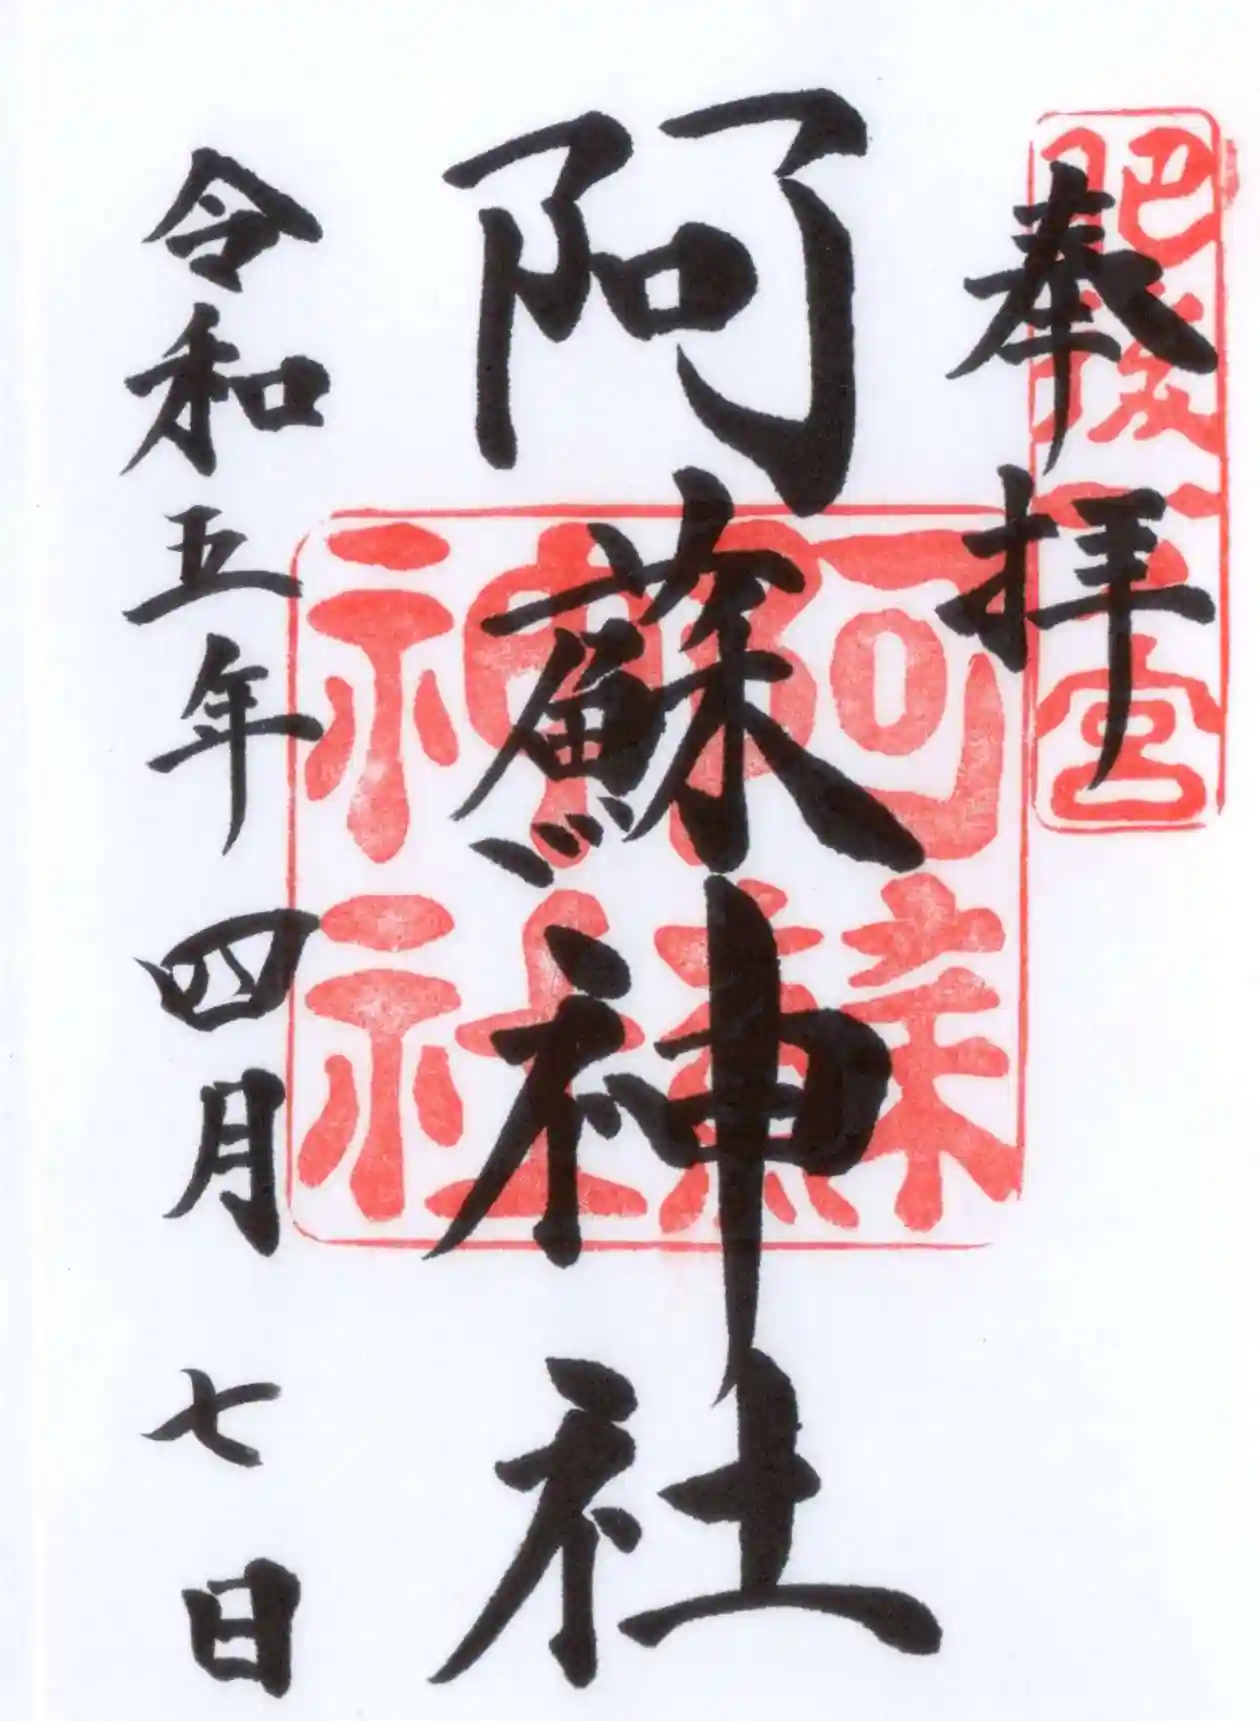 奉拝
肥後一之宮
阿蘇神社
阿蘇神社
令和五年四月七日